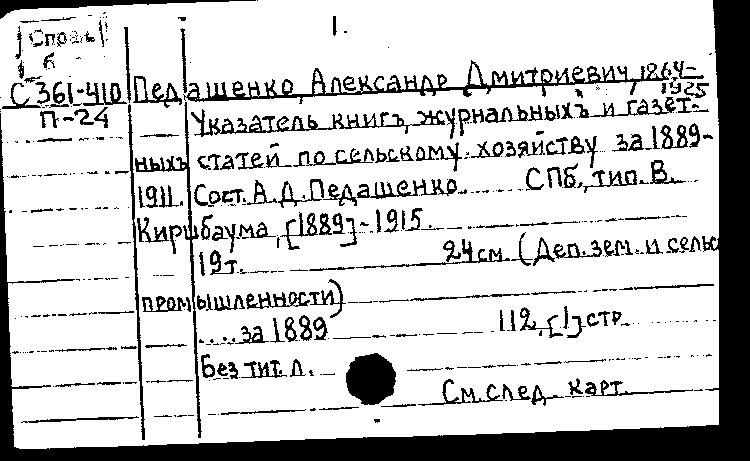 1.
Справ.
б
С 361-410 Педашенко, Александр Дмитриевич, 1864-
1925
П-24 Указатель книгъ, журнальныхъ и газет-
ныхъ статей по сельскому хозяйству за 1889-
1911. Сост. А. Д. Педашенко. СПб., тип. В.
Киршбаума, [1889]-1915.
19т. 24 см. (Деп. зем. и сельс
промышленности)
.... за 1889 112, [1] стр.
Без тит. л.
См. след. карт.